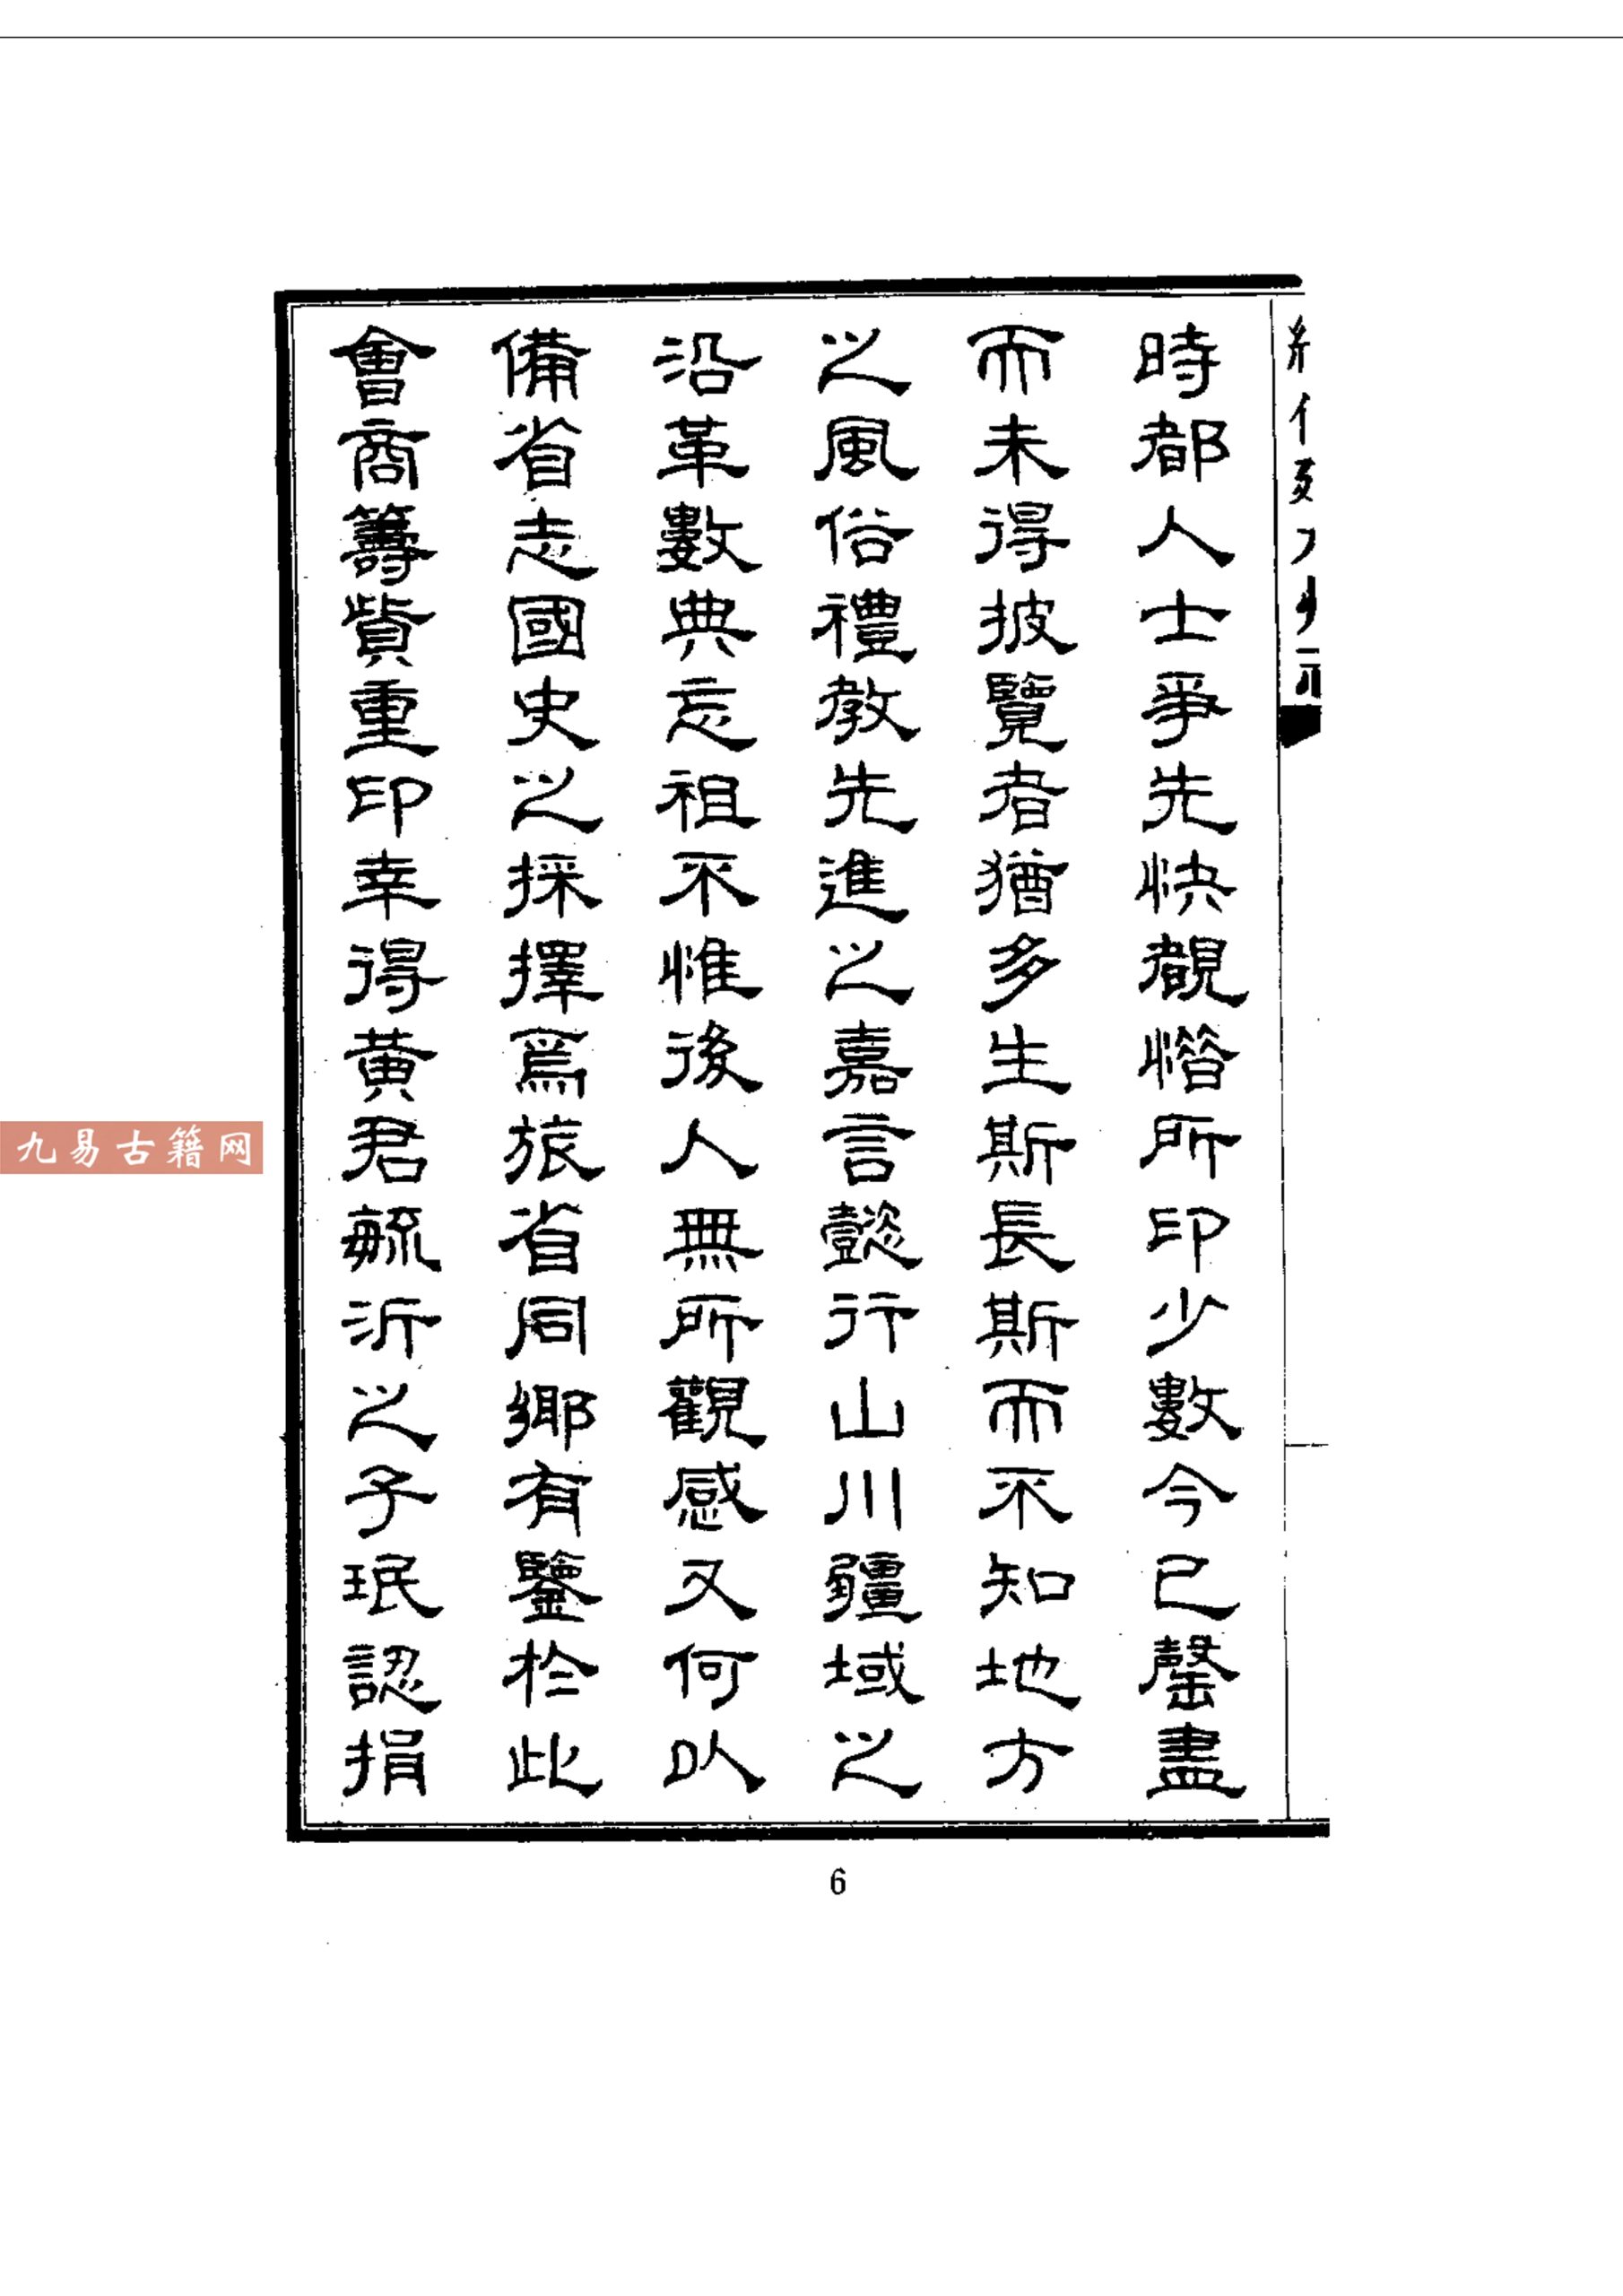 時都人士爭先快覩惜所印少數今已罄盡
而未得披覽者猶多生斯長斯而不知地方
之風俗禮教先進之嘉言懿行山川疆域之
沿革數典忘祖不惟後人無所觀感又何以
備省志國史之採擇爲旅省同鄉有鑒於此
會商籌貲重印幸得黃君毓沂之子珉認捐
九易古籍网
6